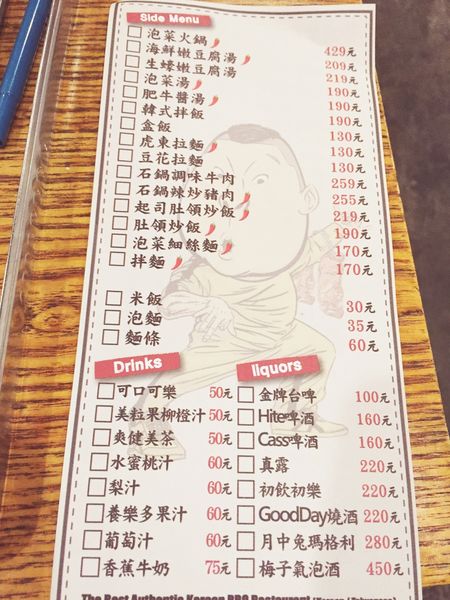 Side Menu
泡菜火鍋 429元
海鮮嫩豆腐湯 209元
生蠔嫩豆腐湯 219元
泡菜湯 190元
肥牛醬湯 190元
韓式拌飯 190元
盒飯 130元
虎東拉麵 130元
豆花拉麵 130元
石鍋調味牛肉 259元
石鍋辣炒豬肉 255元
起司肚領炒飯 219元
肚領炒飯 190元
泡菜細絲麵 170元
拌麵 170元
米飯 30元
泡麵 35元
麵條 60元
Drinks
可口可樂 50元
美粒果柳橙汁 50元
爽健美茶 50元
水蜜桃汁 60元
梨汁 60元
養樂多果汁 60元
葡萄汁 60元
香蕉牛奶 75元
liquors
金牌台啤 100元
Hite啤酒 160元
Cass啤酒 160元
真露 220元
初飲初樂 220元
GoodDay燒酒 220元
月中兔瑪格利 280元
梅子氣泡酒 450元
The Best Authentic Korean BBQ Restaurant